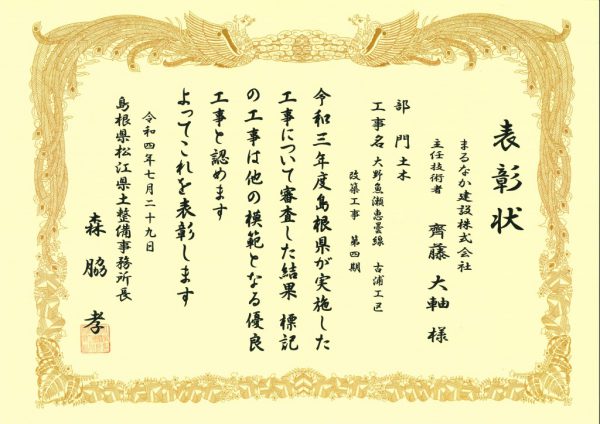 表彰状
まるなか建設株式会社
主任技術者 齊藤 大軸 様
部門 土木
工事名 大野魚瀬恵曇線 古浦工区
改築工事 第四期
令和三年度島根県が実施した
工事について審査した結果 標記
の工事は他の模範となる優良
工事と認めます
よってこれを表彰します
令和四年七月二十九日
島根県松江県土整備事務所長
森脇 孝